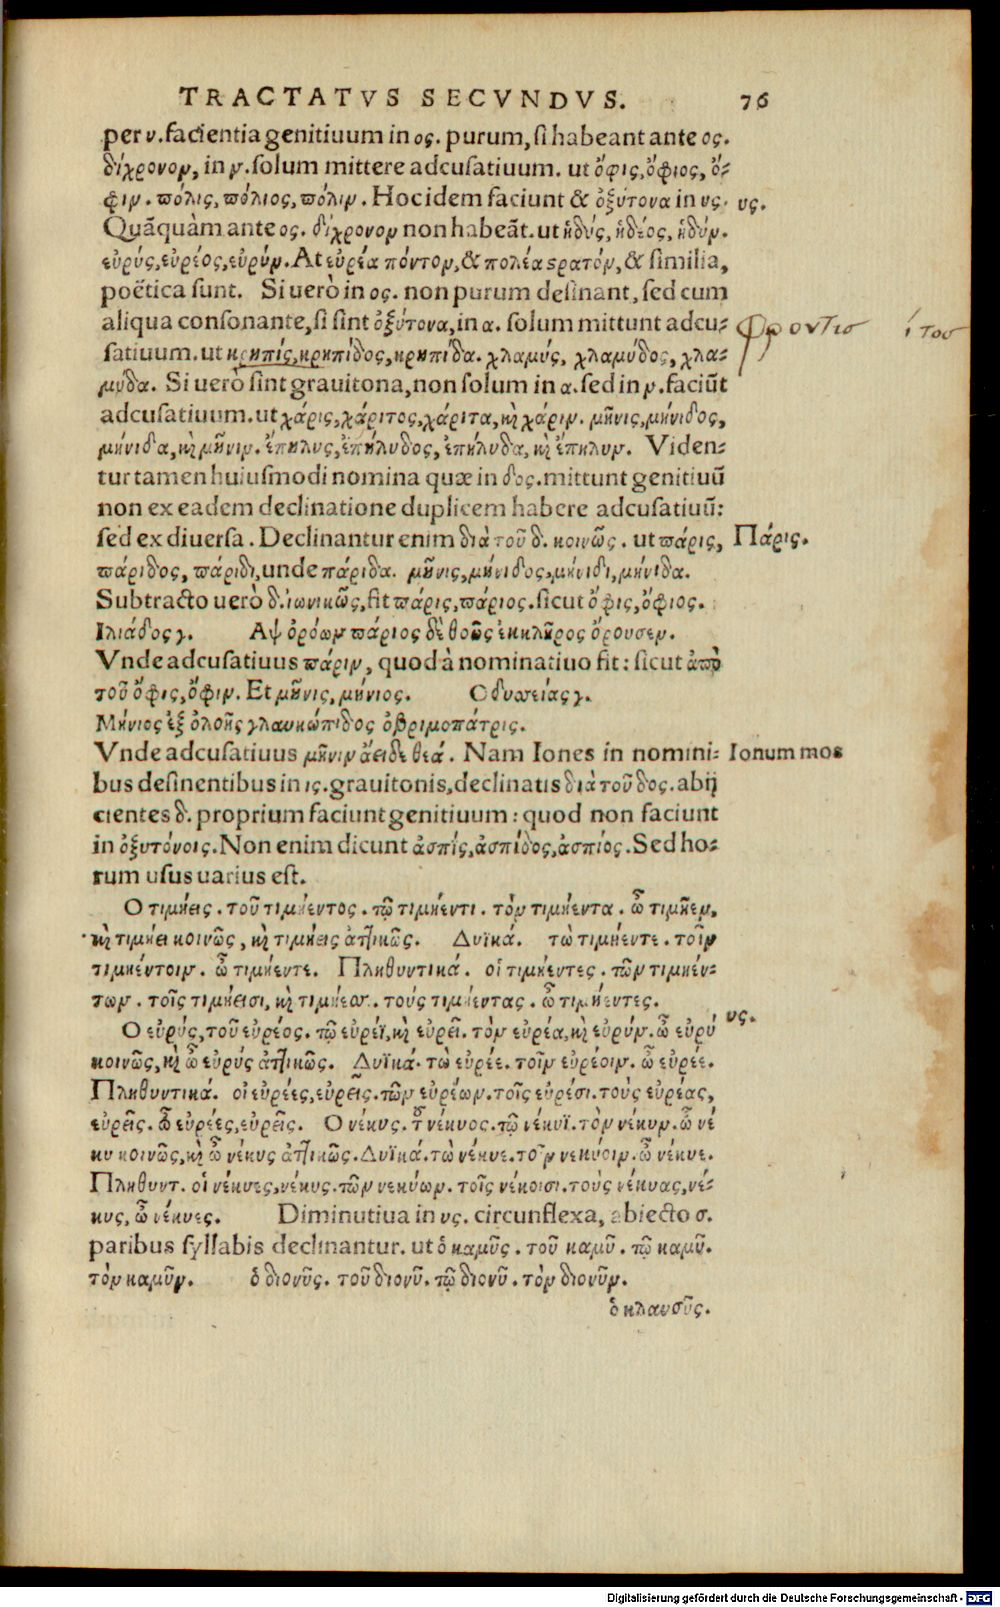 TRACTATVS SECVNDVS. 76
per ν. facientia genitiuum in ος. purum, si habeant ante ος.
δίχρονον, in ν. solum mittere adcusatiuum. ut ὄφις, ὄφιος, ὄ-
φιν. πόλις, πόλιος, πόλιν. Hoc idem faciunt & ὀξύτονα in υς. υς.
Quãquàm ante ος. δίχρονον non habeãt. ut ἡδύς, ἡδέος, ἡδύν.
εὐρύς, εὐρέος, εὐρύν. At εὐρέα πόντον, & πολέα ϛρατόν, & similia,
poëtica sunt. Si uerò in ος. non purum desinant, sed cum
aliqua consonante, si sint ὀξύτονα, in α. solum mittunt adcu- φροντισ ίτου
satiuum. ut κρηπίς, κρηπίδος, κρηπίδα. χλαμύς, χλαμύδος, χλα-
μύδα. Si uerò sint grauitona, non solum in α. sed in ν. faciũt
adcusatiuum. ut χάρις, χάριτος, χάριτα, κὶ χάριν. μῆνις, μήνιδος,
μήνιδα, κὶ μῆνιν. ἔπηλυς, ἐπήλυδος, ἐπήλυδα, κὶ ἔπηλυν. Viden-
tur tamen huiusmodi nomina quæ in δος. mittunt genitiuũ
non ex eadem declinatione duplicem habere adcusatiuũ:
sed ex diuersa. Declinantur enim διὰ τοῦ δ. κοινῶς. ut πάρις, Πάρις.
πάριδος, πάριδι, unde πάριδα. μῆνις, μήνιδος, μήνιδι, μήνιδα.
Subtracto uerò δ. ἰωνικῶς, fit πάρις, πάριος. sicut ὄφις, ὄφιος.
Ιλιάδος γ. Αψ ὁρόων πάριος δὲ θοῶς ἐκ κλῆρος ὄρουσεν.
Vnde adcusatiuus πάριν, quod à nominatiuo fit: sicut ἀπὸ
τοῦ ὄφις, ὄφιν. Et μῆνις, μήνιος. Οδυσσείας γ.
Μήνιος ἐξ ὀλοῆς γλαυκώπιδος ὀβριμοπάτρις.
Vnde adcusatiuus μῆνιν ἄειδε θεά. Nam Iones in nomini- Ionum mos
bus desinentibus in ις. grauitonis, declinatis διὰ τοῦ δος. abij
cientes δ. proprium faciunt genitiuum: quod non faciunt
in ὀξυτόνοις. Non enim dicunt ἀσπίς, ἀσπίδος, ἀσπίος. Sed ho-
rum usus uarius est.
Ο τιμήεις. τοῦ τιμήεντος. τῷ τιμήεντι. τὸν τιμήεντα. ὦ τιμῆεν,
κὶ τιμήει κοινῶς, κὶ τιμήεις ἀττικῶς. Δυϊκά. τὼ τιμήεντε. τοῖν
τιμηέντοιν. ὦ τιμήεντε. Πληθυντικά. οἱ τιμήεντες. τῶν τιμηέν-
των. τοῖς τιμήεισι, κὶ τιμήεσι. τοὺς τιμήεντας. ὦ τιμήεντες.
Ο εὐρύς, τοῦ εὐρέος. τῷ εὐρέϊ, κὶ εὐρεῖ. τὸν εὐρέα, κὶ εὐρύν. ὦ εὐρύ υς.
κοινῶς, κὶ ὦ εὐρύς ἀττικῶς. Δυϊκά. τὼ εὐρέε. τοῖν εὐρέοιν. ὦ εὐρέε.
Πληθυντικά. οἱ εὐρέες, εὐρεῖς. τῶν εὐρέων. τοῖς εὐρέσι. τοὺς εὐρέας,
εὐρεῖς. ὦ εὐρέες, εὐρεῖς. Ο νέκυς. τοῦ νέκυος. τῷ νέκυϊ. τὸν νέκυν. ὦ νέ
κυ κοινῶς, κὶ ὦ νέκυς ἀττικῶς. Δυϊκά. τὼ νέκυε. τοῖν νεκύοιν. ὦ νέκυε.
Πληθυντ. οἱ νέκυες, νέκυς. τῶν νεκύων. τοῖς νέκυσι. τοὺς νέκυας, νέ-
κυς, ὦ νέκυες. Diminutiua in υς. circunflexa, abiecto σ.
paribus syllabis declinantur. ut ὁ καμῦς. τοῦ καμῦ. τῷ καμῦ.
τὸν καμῦν. ὁ διονῦς. τοῦ διονῦ. τῷ διονῦ. τὸν διονῦν.
ὁ κλαυσῦς.
Digitalisierung gefördert durch die Deutsche Forschungsgemeinschaft - DFG